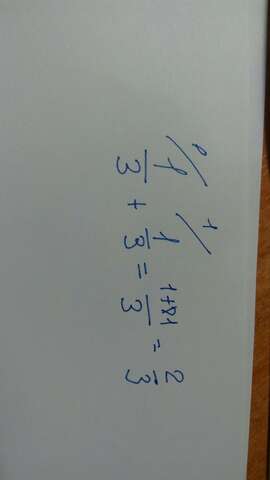 1/3 + ¹/ 1/3 = (1+1)/3 = 2/3